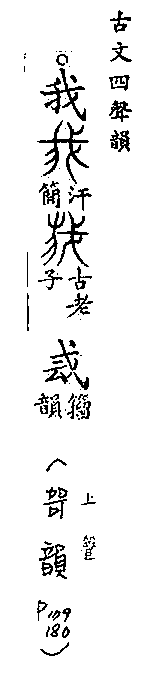 古文四聲韻
我
汗簡
古老子
籀韻
(哿韻
上
180)